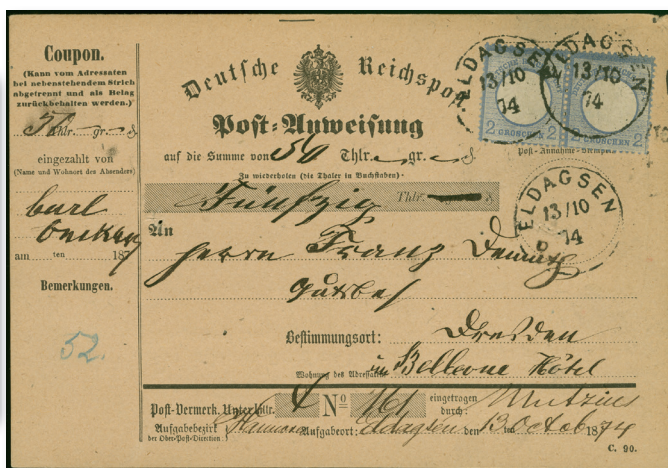 Coupon.
(Kann vom Adressaten
bei nebenstehendem Strich
abgetrennt und als Belag
zurückbehalten werden.)
Thlr. gr. ₰
eingezahlt von
(Name und Wohnort des Absenders)
Carl
am ten 187
Bemerkungen.
52.
Deutsche Reichspost
Post-Anweisung
auf die Summe von 50 Thlr. gr. ₰
Zu wiederholen (die Thaler in Buchstaben)
Fünfzig Thlr. ₰
An
Herrn Franz
Bestimmungsort: Dresden
Wohnung des Adressaten: im Bellevue Hôtel
Post-Vermerk. Unter Nr. No 161 eingetragen durch:
Aufgabebezirk Aufgabeort: Eldagsen den 13 ten Octob 1874
(der Ober-Post-Direction:)
C. 90.
ELDAGSEN
13/10
74
ELDAGSEN
13/10
74
2 GROSCHEN 2
2 GROSCHEN 2
Post-Annahme-Stempel
ELDAGSEN
13/10
74